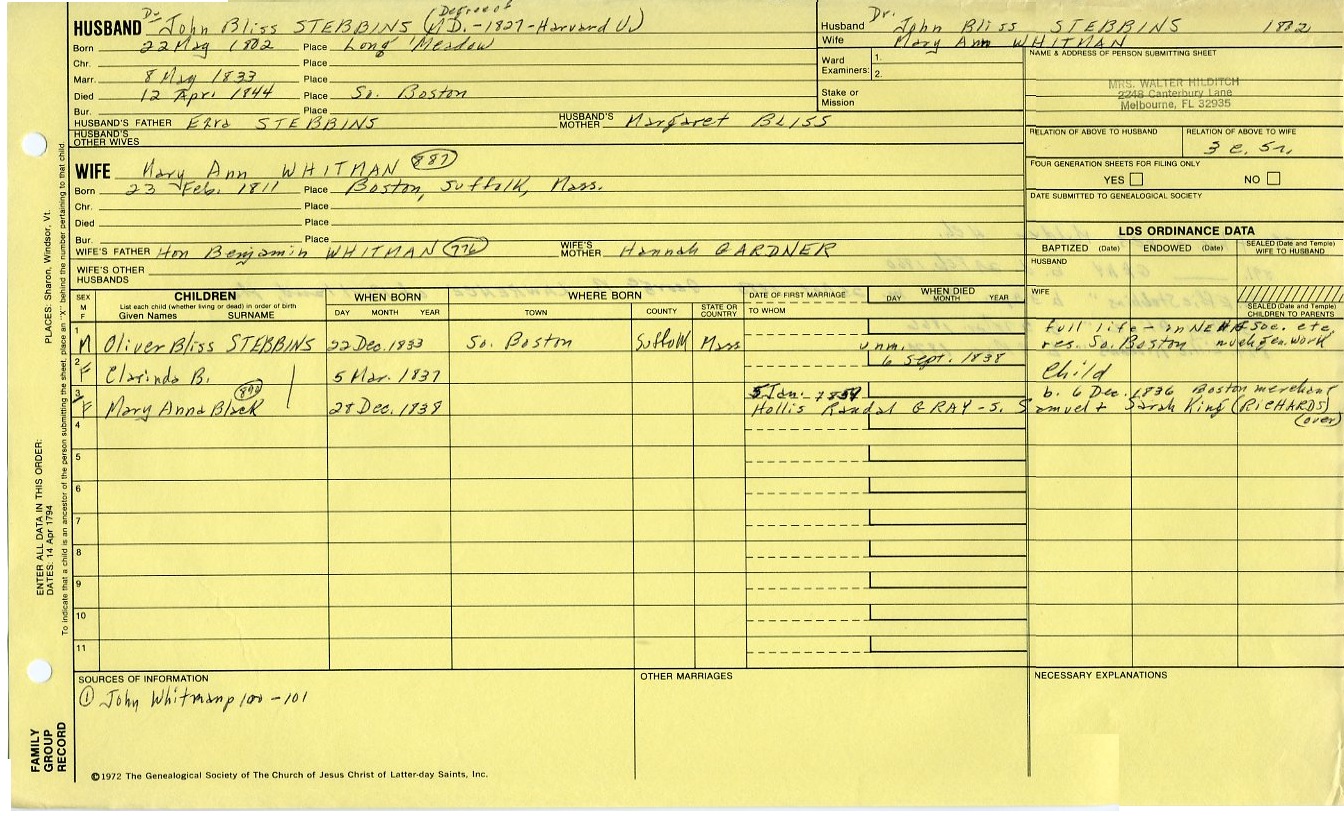 HUSBAND Dr. John Bliss STEBBINS (Degree of M.D.-1827-Harvard U.)
Born 22 May 1802 Place Long Meadow
Chr. Place
Marr. 8 May 1833 Place
Died 12 Apri 1844 Place So. Boston
Bur. Place
HUSBAND'S FATHER Ezra STEBBINS HUSBAND'S MOTHER Margaret BLISS
HUSBAND'S OTHER WIVES
Husband Dr. John Bliss STEBBINS 1802
Wife Mary Ann WHITMAN
Ward Examiners: 1.
2.
Stake or Mission
NAME & ADDRESS OF PERSON SUBMITTING SHEET
MRS. WALTER HILDITCH
2248 Canterbury Lane
Melbourne, FL 32935
RELATION OF ABOVE TO HUSBAND RELATION OF ABOVE TO WIFE
3 c. 5r.
FOUR GENERATION SHEETS FOR FILING ONLY
YES NO
DATE SUBMITTED TO GENEALOGICAL SOCIETY
WIFE Mary Ann WHITMAN 887
Born 23 Feb. 1811 Place Boston, Suffolk, Mass.
Chr. Place
Died Place
Bur. Place
WIFE'S FATHER Hon Benjamin WHITMAN 776 WIFE'S MOTHER Hannah GARDNER
WIFE'S OTHER HUSBANDS
LDS ORDINANCE DATA
BAPTIZED (Date) ENDOWED (Date) SEALED (Date and Temple) WIFE TO HUSBAND
HUSBAND
WIFE
SEALED (Date and Temple) CHILDREN TO PARENTS
SEX M F CHILDREN WHEN BORN WHERE BORN DATE OF FIRST MARRIAGE WHEN DIED
List each child (whether living or dead) in order of birth
Given Names SURNAME DAY MONTH YEAR TOWN COUNTY STATE OR COUNTRY TO WHOM DAY MONTH YEAR
full life - in NEH&G Soc. etc.
1 M Oliver Bliss STEBBINS 22 Dec. 1833 So. Boston Suffolk Mass unm. res. So. Boston much gen. work
6 Sept. 1838
2 F Clarinda B. 5 Mar. 1837 Child
890 5 Jan. 1859 b. 6 Dec. 1836 Boston merchant
3 F Mary Anna Black 28 Dec. 1838 Hollis Randal GRAY - s. Samuel + Sarah King (RICHARDS)
(over)
4
5
6
7
8
9
10
11
SOURCES OF INFORMATION OTHER MARRIAGES NECESSARY EXPLANATIONS
① John Whitman p 100-101
©1972 The Genealogical Society of The Church of Jesus Christ of Latter-day Saints, Inc.
FAMILY GROUP RECORD
ENTER ALL DATA IN THIS ORDER:
DATES: 14 Apr 1794
PLACES: Sharon, Windsor, Vt.
To indicate that a child is an ancestor of the person submitting the sheet, place an "X" behind the number pertaining to that child.